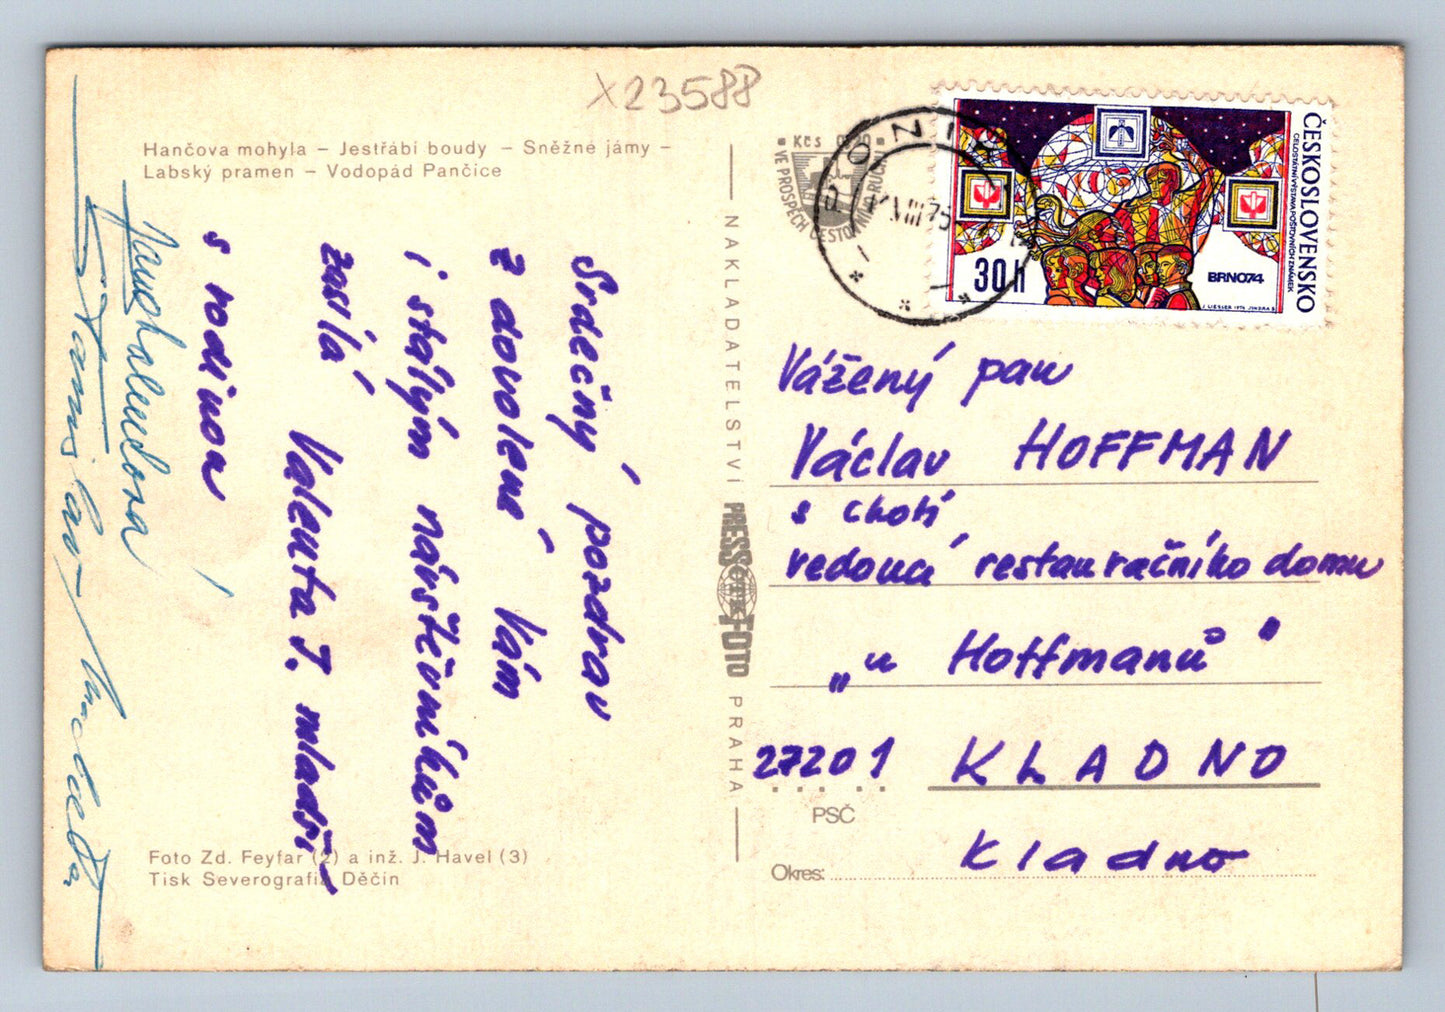 X23588
Hančova mohyla – Jestřábí boudy – Sněžné jámy –
Labský pramen – Vodopád Pančice
Srdečný pozdrav
z dovolené Vám
i stálým návštěvníkům
zasílá
Valenta J. mladší
s rodinou
Foto Zd. Feyfar (2) a inž. J. Havel (3)
Tisk Severografia Děčín
NAKLADATELSTVÍ PRESSFOTO PRAHA
Kčs
VE PROSPĚCH CESTOVNÍHO RUCHU
VIII 75
ČESKOSLOVENSKO
CELOSTÁTNÍ VÝSTAVA POŠTOVNÍCH ZNÁMEK
30h
BRNO74
J. LIESLER 1974 JINDRA S.
Vážený pan
Václav HOFFMAN
s chotí
vedoucí restauračního domu
„u Hoffmanů"
27201 KLADNO
PSČ
Kladno
Okres: